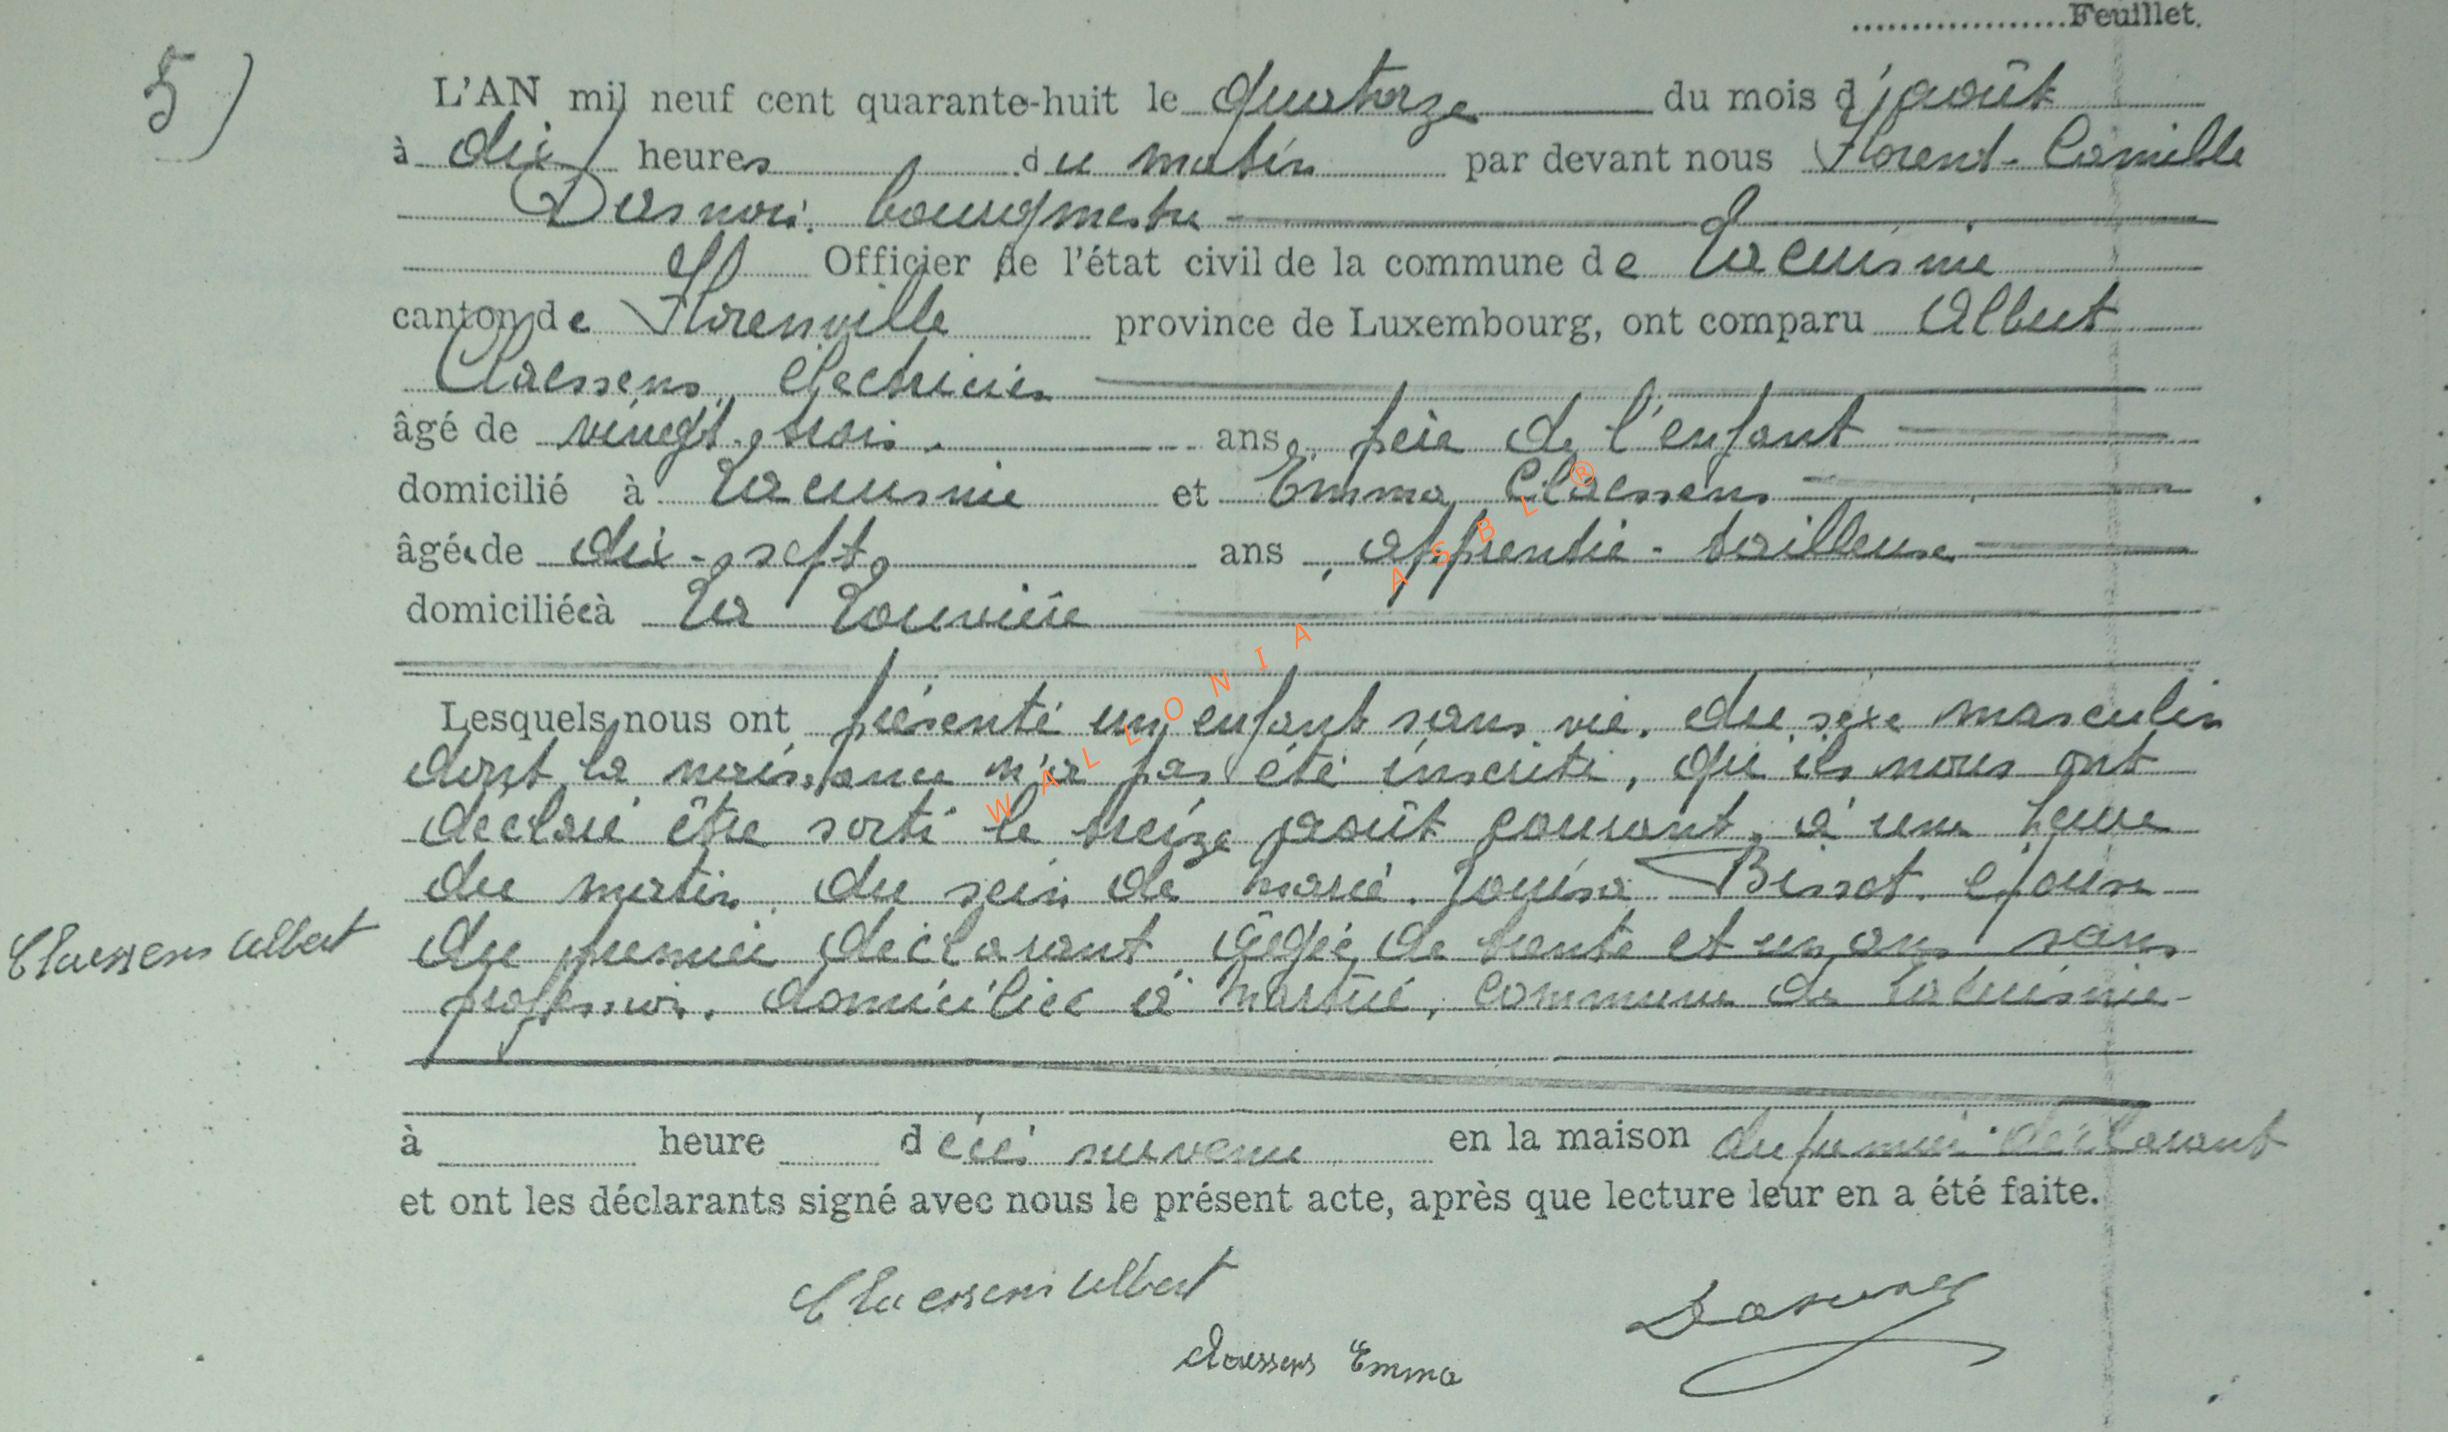 Feuillet.
5)
L'AN mil neuf cent quarante-huit le quatorze du mois d'août
à dix heures du matin par devant nous Florent-Camille
Dasnoi, bourgmestre
Officier de l'état civil de la commune de Lacuisine
canton de Florenville province de Luxembourg, ont comparu Albert
Claessens, électricien
âgé de vingt-trois ans, père de l'enfant
domicilié à Lacuisine et Emma Claessens
âgée de dix-sept ans, apprentie-tailleuse
domiciliée à La Louvière
Lesquels nous ont présenté un enfant sans vie, du sexe masculin
dont la naissance n'a pas été inscrite, qu'ils nous ont
déclaré être sorti le treize août courant, à une heure
du matin, du sein de Marie-Louisa Bissot, épouse
du premier déclarant, âgée de trente et un ans, sans
profession, domiciliée à Martué, commune de Lacuisine
Claessens Albert
à heure d ici survenu en la maison du premier déclarant
et ont les déclarants signé avec nous le présent acte, après que lecture leur en a été faite.
Claessens Albert
Claessens Emma
WALLONIA ASBL ®